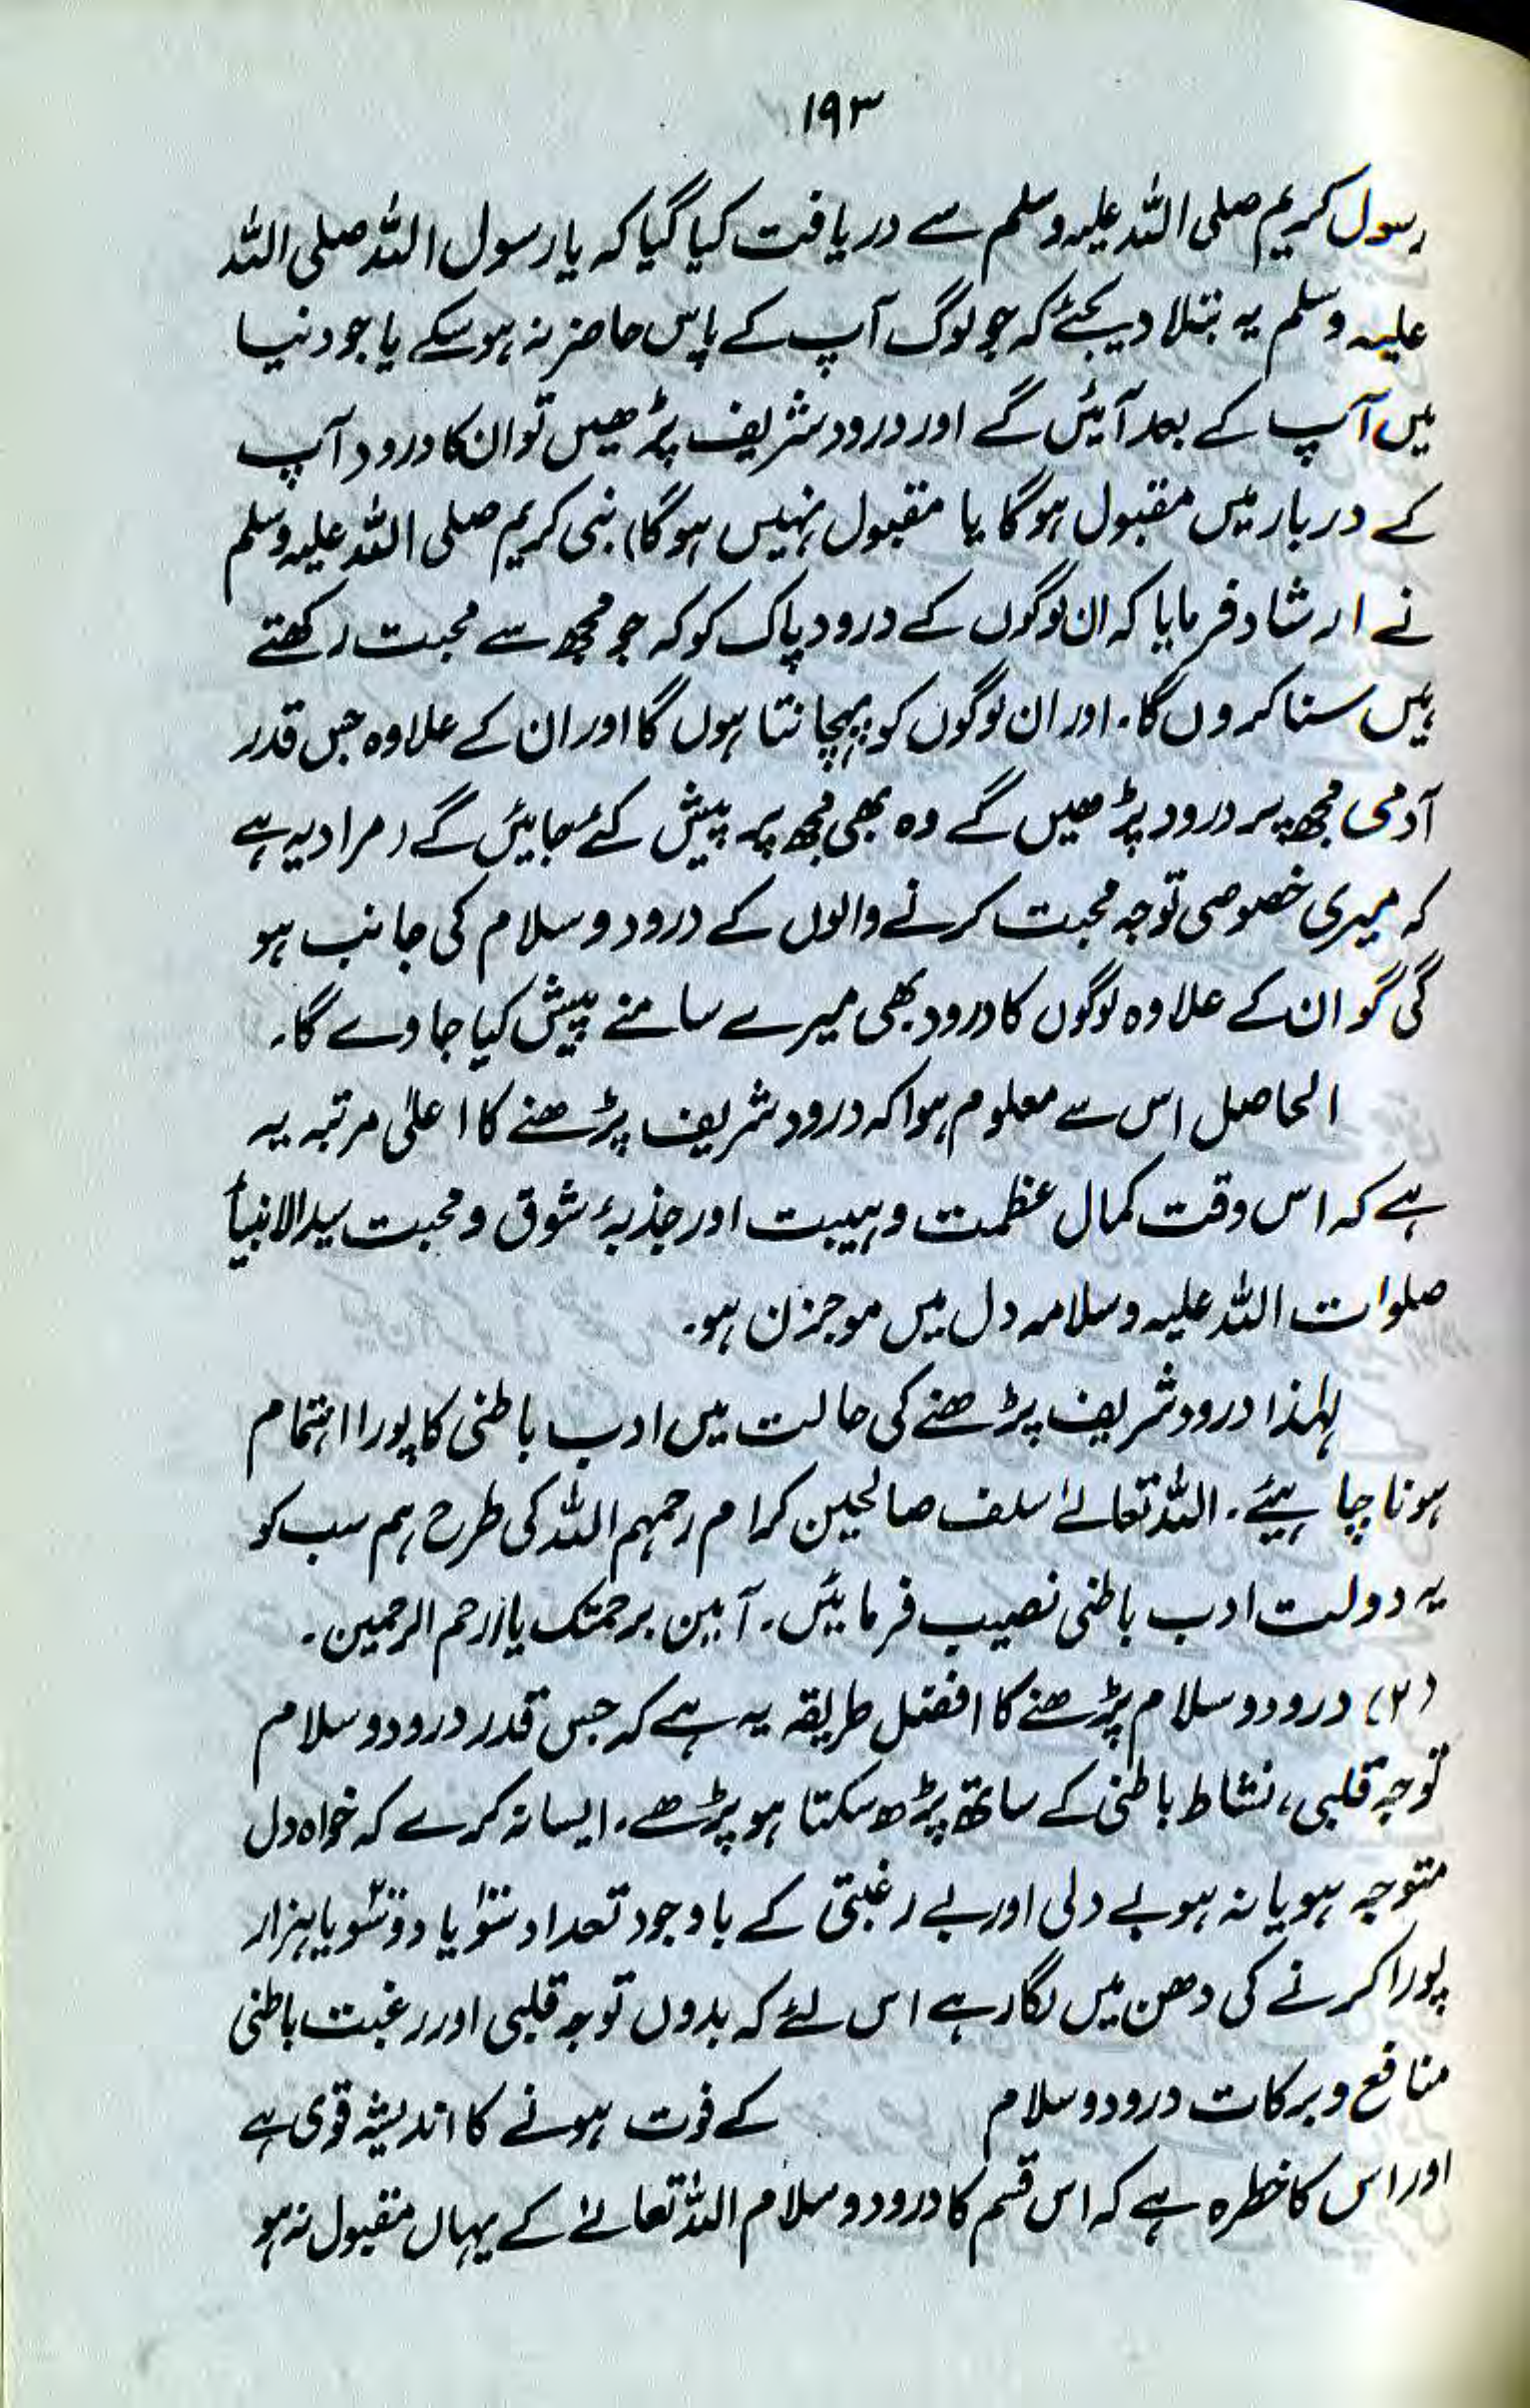 ۱۹۳
رسول کریم صلی اللہ علیہ وسلم سے دریافت کیا گیا کہ یا رسول اللہ صلی اللہ
علیہ وسلم یہ بتلا دیجئے کہ جو لوگ آپ کے پاس حاضر نہ ہو سکے یا جو دنیا
میں آپ کے بعد آئیں گے اور درود شریف پڑھیں تو ان کا درود آپ
کے دربار میں مقبول ہوگا یا مقبول نہیں ہوگا) نبی کریم صلی اللہ علیہ وسلم
نے ارشاد فرمایا کہ ان لوگوں کے درود پاک کو کہ جو مجھ سے محبت رکھتے
ہیں سنا کروں گا۔ اور ان لوگوں کو پہچانتا ہوں گا اور ان کے علاوہ جس قدر
آدمی مجھ پر درود پڑھیں گے وہ بھی مجھ پر پیش کئے جائیں گے (مراد یہ ہے
کہ میری خصوصی توجہ محبت کرنے والوں کے درود و سلام کی جانب ہو
گی گو ان کے علاوہ لوگوں کا درود بھی میرے سامنے پیش کیا جاوے گا۔
الحاصل اس سے معلوم ہوا کہ درود شریف پڑھنے کا اعلیٰ مرتبہ یہ
ہے کہ اس وقت کمال عظمت و ہیبت اور جذبۂ شوق و محبت سید الانبیأ
صلوات اللہ علیہ وسلامہ دل میں موجزن ہو۔
لہٰذا درود شریف پڑھنے کی حالت میں ادب باطنی کا پورا اہتمام
ہونا چاہیئے۔ اللہ تعالےٰ سلف صالحین کرام رحمہم اللہ کی طرح ہم سب کو
یہ دولت ادب باطنی نصیب فرمائیں۔ آمین برحمتک یا ارحم الرحمین۔
(۲) درود و سلام پڑھنے کا افضل طریقہ یہ ہے کہ جس قدر درود و سلام
توجہ قلبی، نشاط باطنی کے ساتھ پڑھ سکتا ہو پڑھے۔ ایسا نہ کرے کہ خواہ دل
متوجہ ہو یا نہ ہو بے دلی اور بے رغبتی کے باوجود تعداد سو یا دو سو یا ہزار
پورا کرنے کی دھن میں لگا رہے اس لئے کہ بدوں توجہ قلبی اور رغبت باطنی
منافع و برکات درود و سلام کے فوت ہونے کا اندیشہ قوی ہے
اور اس کا خطرہ ہے کہ اس قسم کا درود و سلام اللہ تعالےٰ کے یہاں مقبول نہ ہو